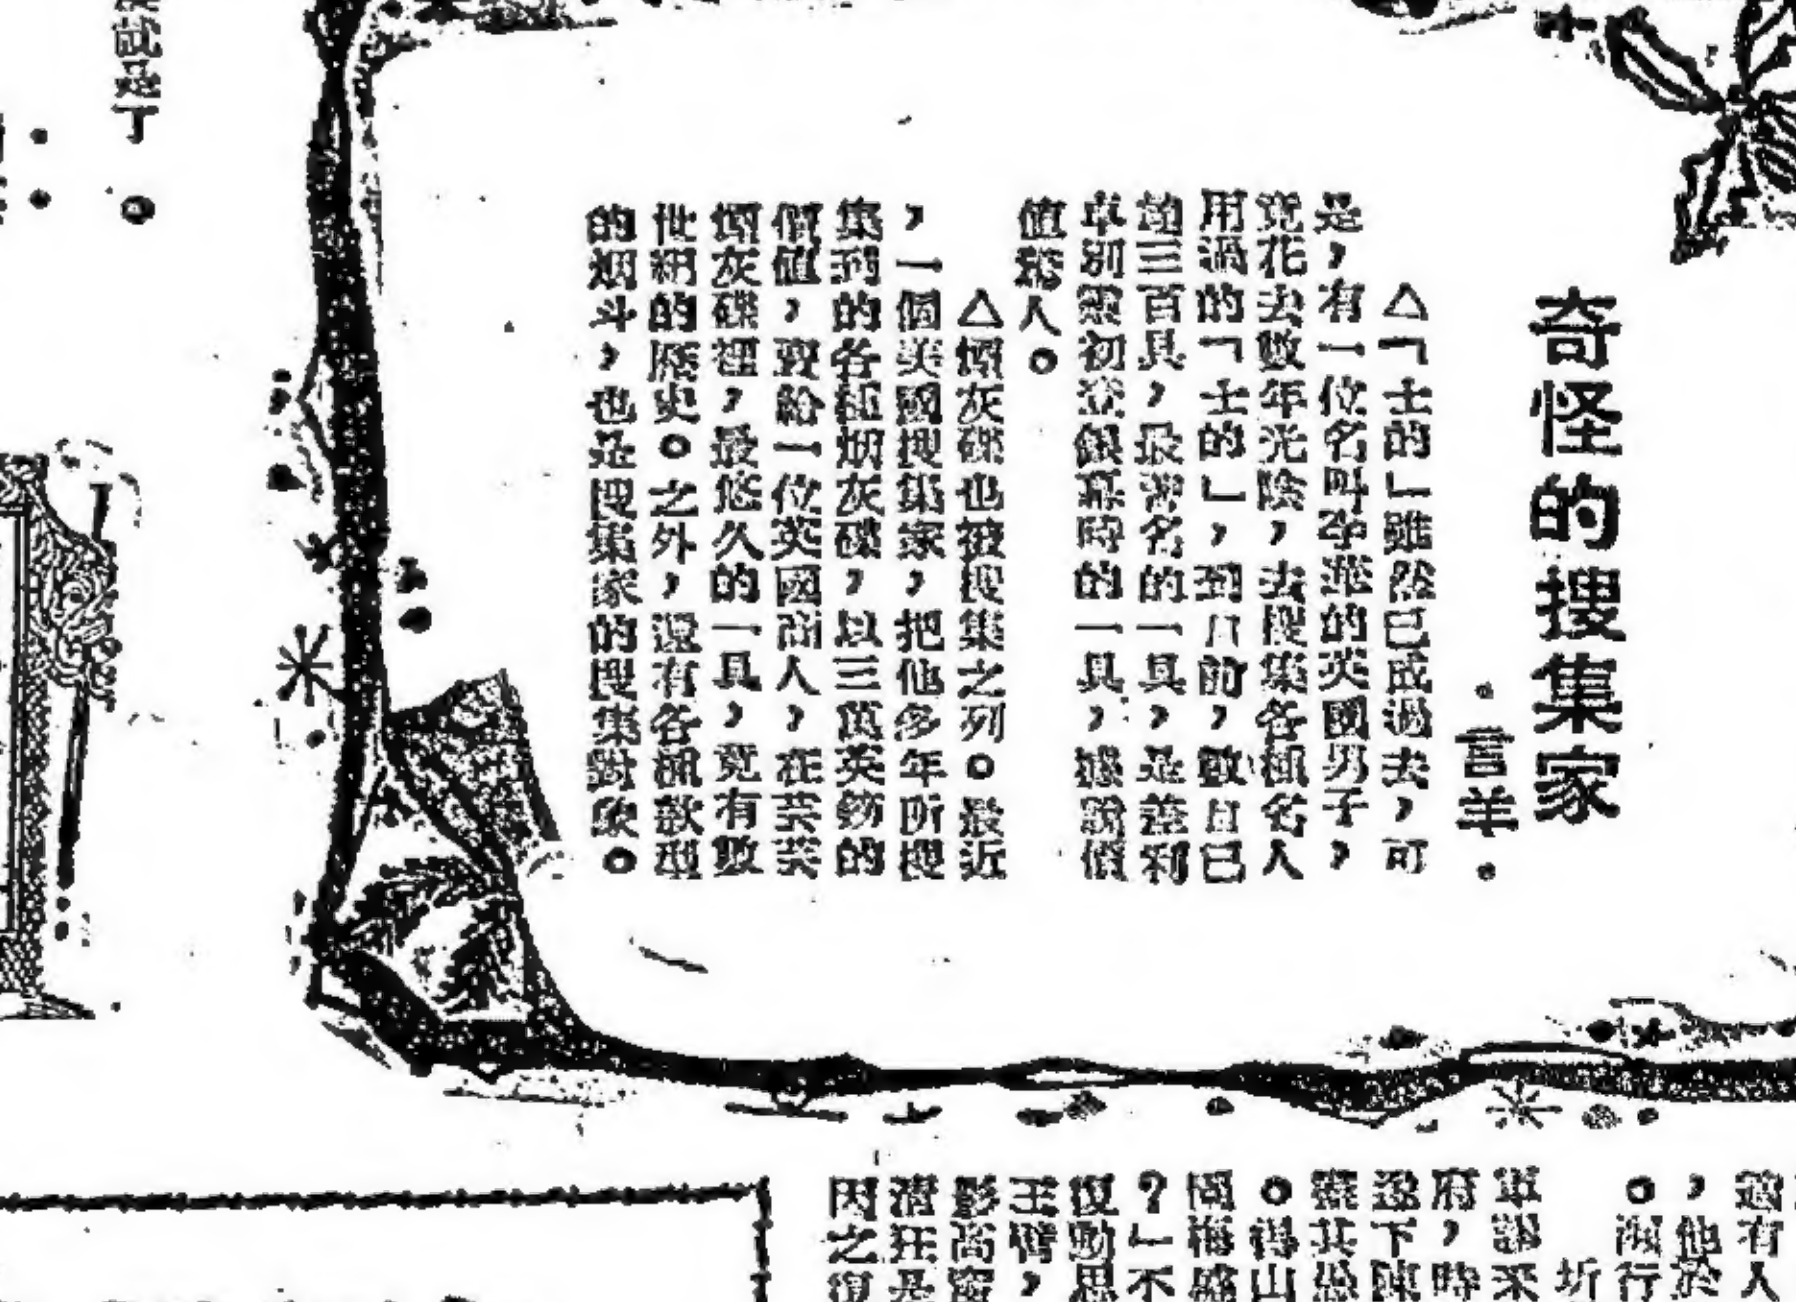 奇怪的搜集家
·言羊·
△「士的」雖然已成過去,可
是,有一位名叫李滋的英國男子,
竟花去數年光陰,去搜集各種名人
用過的「士的」,到目前,數目已
逾三百具,最著名的一具,是差利
卓別靈初登銀幕時的一具,據說價
值驚人。
△煙灰碟也被搜集之列。最近
,一個美國搜集家,把他多年所搜
集到的各種烟灰碟,以三萬英鎊的
價值,賣給一位英國商人,在芸芸
煙灰碟裡,最悠久的一具,竟有數
世紀的歷史。之外,還有各種款型
的烟斗,也是搜集家的搜集對象。
試思了。
適有人
,他於
。行
圻
軍
府,時
遂下陳
其
。得山
梅
?」不
復動思
王臂,
影高
清狂是
因之復